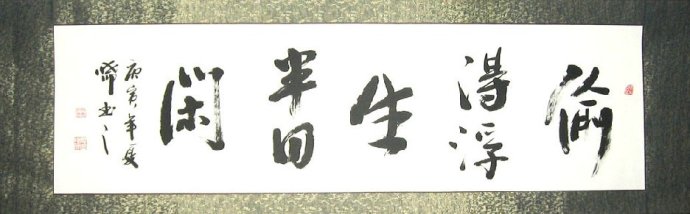 偷
得浮
生
半日
閑
庚寅年夏
書之